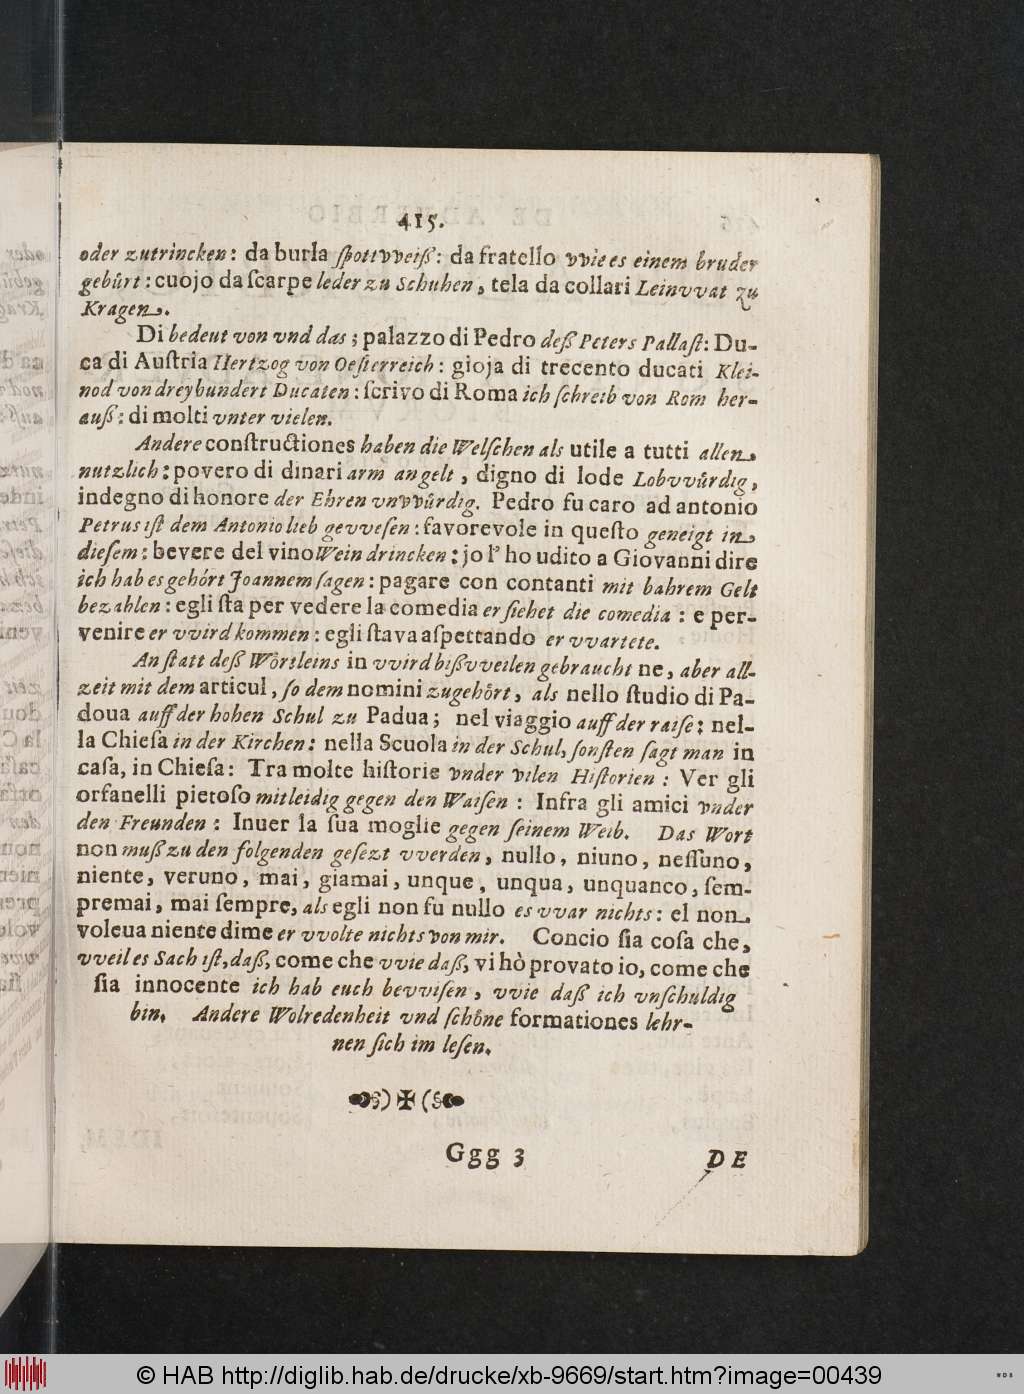 415.
oder zutrincken: da burla ſpottvveiß: da fratello vvie es einem bruder
gebůrt: cuojo da ſcarpe leder zu Schuhen, tela da collari Leinvvat zu
Kragen.
Di bedeut von vnd das; palazzo di Pedro deß Peters Pallaſt: Du-
ca di Auſtria Hertzog von Oeſterreich: gioja di trecento ducati Klei-
nod von dreyhundert Ducaten: ſcrivo di Roma ich ſchreib von Rom her-
auß: di molti vnter vielen.
Andere conſtructiones haben die Welſchen als utile a tutti allen
nutzlich: povero di dinari arm an gelt, digno di lode Lobvvůrdig,
indegno di honore der Ehren vnvvůrdig. Pedro fu caro ad antonio
Petrus iſt dem Antonio lieb gevveſen: favorevole in queſto geneigt in
dieſem: bevere del vino Wein drincken: jo l' ho udito a Giovanni dire
ich hab es gehört Joannem ſagen: pagare con contanti mit bahrem Gelt
bezahlen: egli ſta per vedere la comedia er ſiehet die comedia: e per-
venire er vvird kommen: egli ſtava aſpettando er vvartete.
An ſtatt deß Wörtleins in vvird bißvveilen gebraucht ne, aber all-
zeit mit dem articul, ſo dem nomini zugehört, als nello ſtudio di Pa-
doua auff der hohen Schul zu Padua; nel viaggio auff der raiſe; nel-
la Chieſa in der Kirchen: nella Scuola in der Schul, ſonſten ſagt man in
caſa, in Chieſa: Tra molte hiſtorie vnder vilen Hiſtorien: Ver gli
orfanelli pietoſo mitleidig gegen den Waiſen: Infra gli amici vnder
den Freunden: Inuer la ſua moglie gegen ſeinem Weib. Das Wort
non muß zu den folgenden geſezt vverden, nullo, niuno, neſſuno,
niente, veruno, mai, giamai, unque, unqua, unquanco, ſem-
premai, mai ſempre, als egli non fu nullo es vvar nichts: el non
voleua niente dime er vvolte nichts von mir. Concio ſia coſa che,
vveil es Sach iſt, daß, come che vvie daß, vi hò provato io, come che
ſia innocente ich hab euch bevviſen, vvie daß ich vnſchuldig
bin. Andere Wolredenheit vnd ſchöne formationes lehr-
nen ſich im leſen.
Ggg 3 DE
© HAB http://diglib.hab.de/drucke/xb-9669/start.htm?image=00439